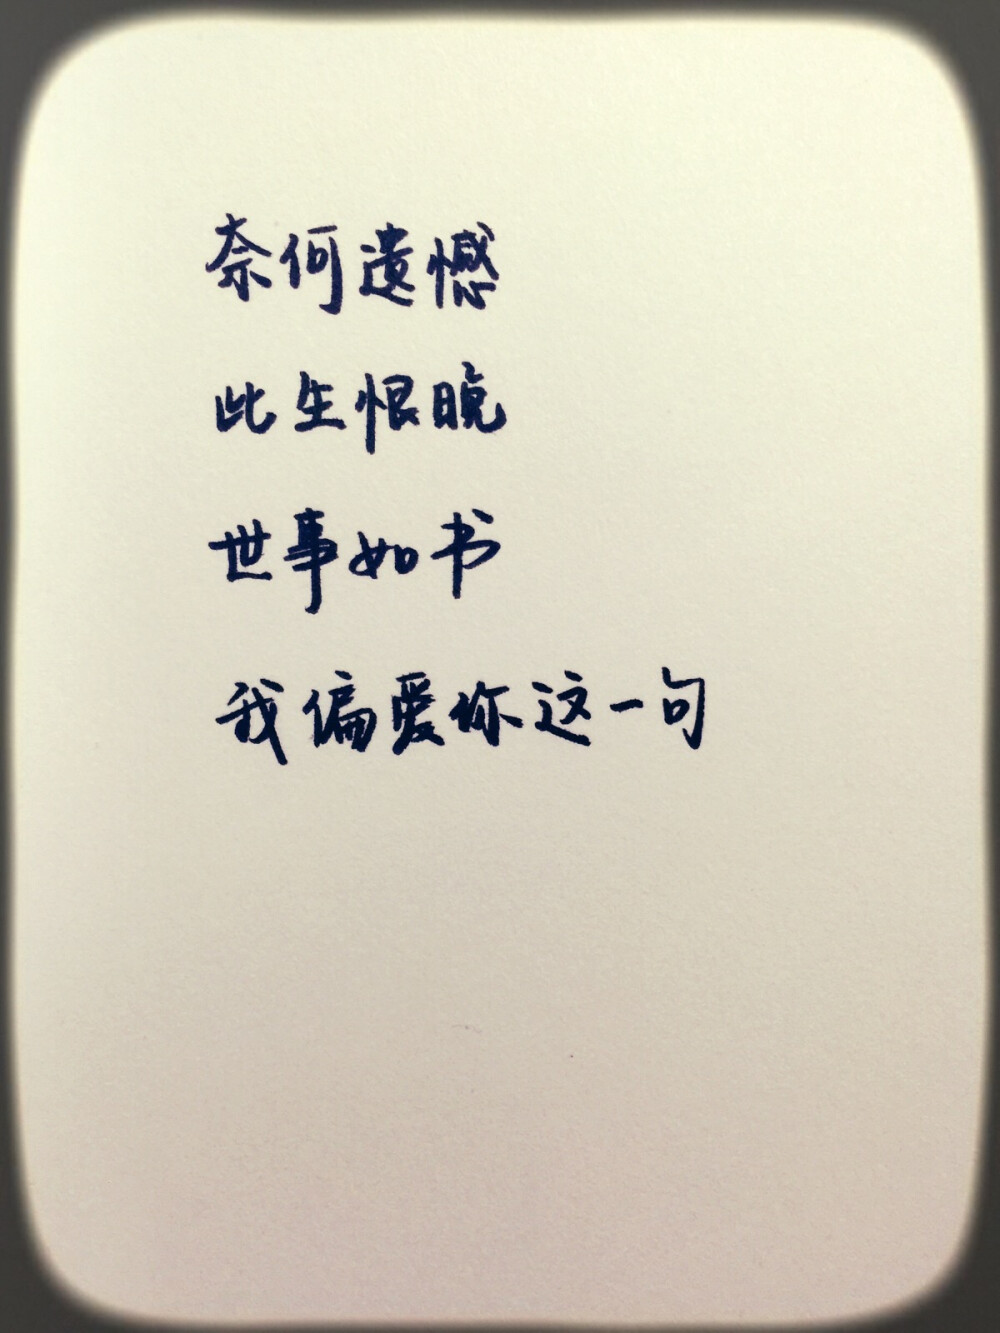 奈何遗憾
此生恨晚
世事如书
我偏爱你这一句